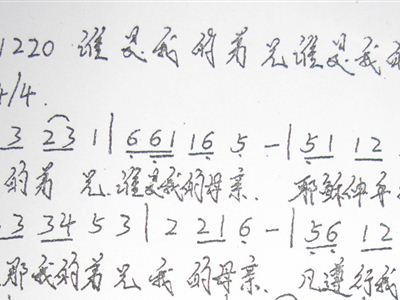 1220 谁是我的弟兄谁是我的
4/4.
3 23 1 | 6 61 16 5 - | 51 12
的弟 兄. 谁是我的母亲. 耶稣伸手
3 34 5 3 | 2 21 6 - | 56 12
那我的弟兄 我的母亲. 凡遵行我